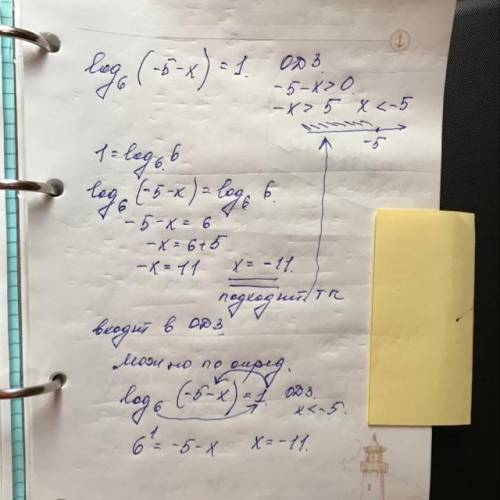 log₆(-5-x)=1. ОДЗ.
-5-x>0.
-x>5 x<-5
-5
1=log₆6
log₆(-5-x)=log₆6.
-5-x=6
-x=6+5
-x=11 x=-11.
подходит, тк
входит в ОДЗ.
Можно по опред.
log₆(-5-x)=1 ОДЗ.
x<-5.
6¹=-5-x x=-11.